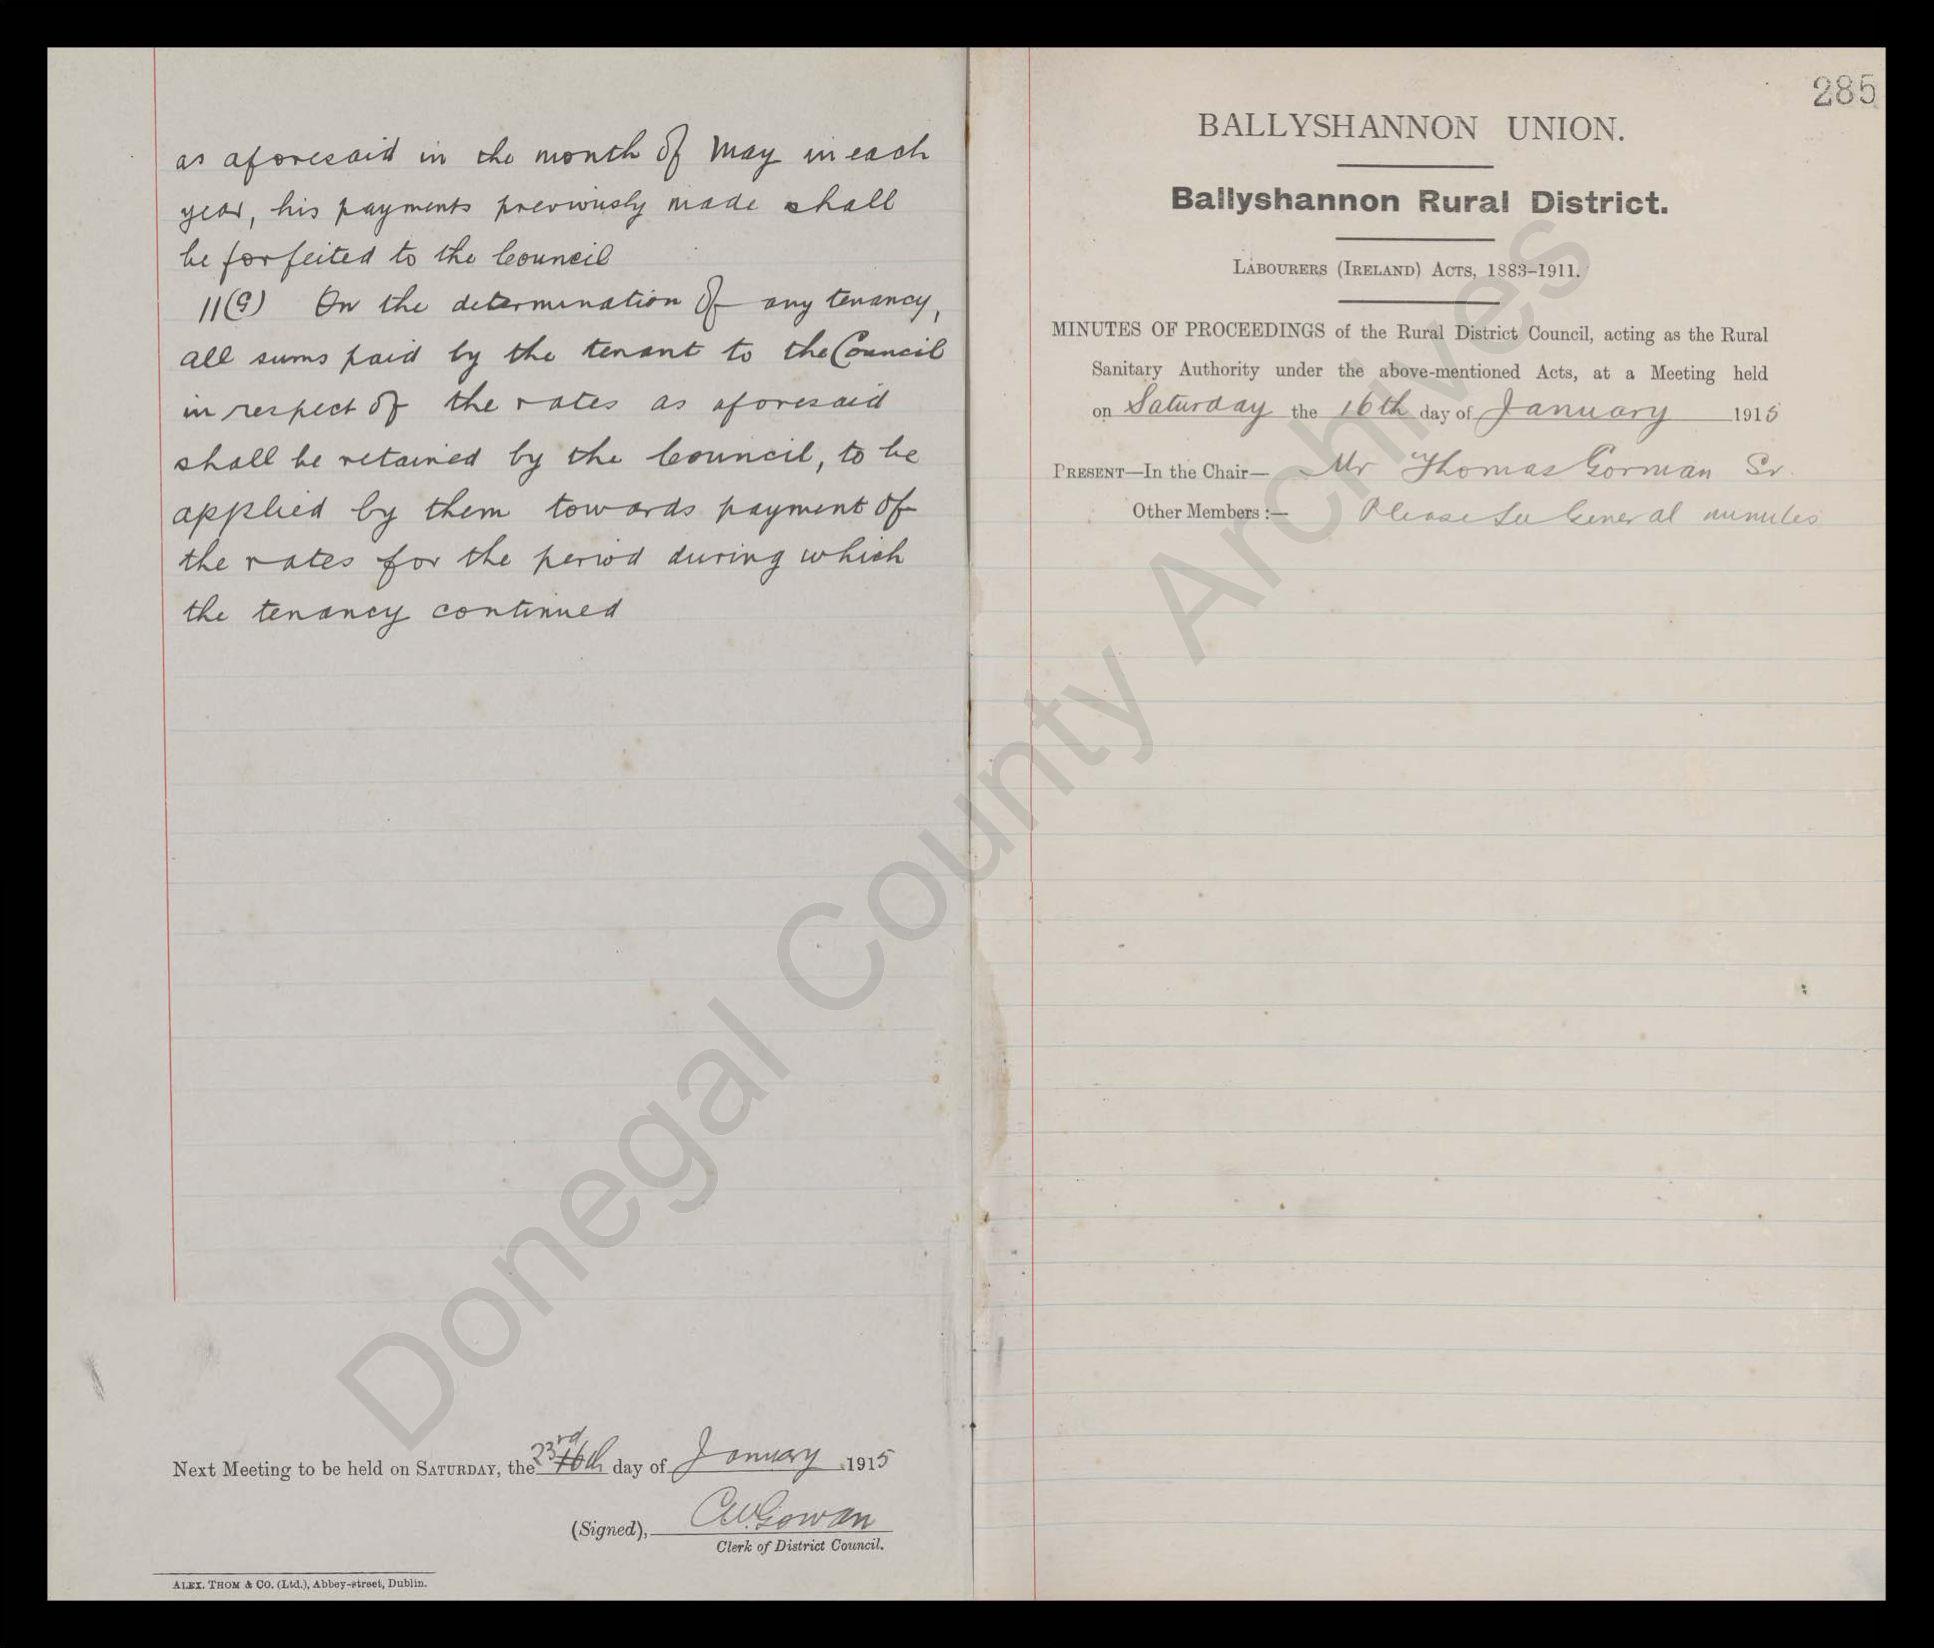 as aforesaid in the month of May in each
year, his payments previously made shall
be forfeited to the Council
11(9) On the determination of any tenancy,
all sums paid by the tenant to the Council
in respect of the rates as aforesaid
shall be retained by the Council, to be
applied by them towards payment of
the rates for the period during which
the tenancy continued
Next Meeting to be held on SATURDAY, the 23rd 16th day of January 1915
(Signed), C.W. Gowan
Clerk of District Council.
ALEX. THOM & CO. (Ltd.), Abbey-street, Dublin.
285
BALLYSHANNON UNION.
Ballyshannon Rural District.
LABOURERS (IRELAND) ACTS, 1883-1911.
MINUTES OF PROCEEDINGS of the Rural District Council, acting as the Rural
Sanitary Authority under the above-mentioned Acts, at a Meeting held
on Saturday the 16th day of January 1915
PRESENT—In the Chair— Mr Thomas Gorman Sr.
Other Members:— Please see General minutes
Donegal County Archives